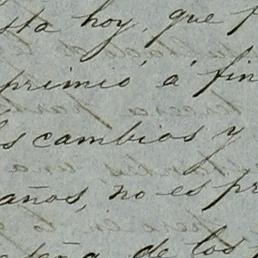 sta hoy, que
primió á fin
s cambios y
años, no es pr
de los